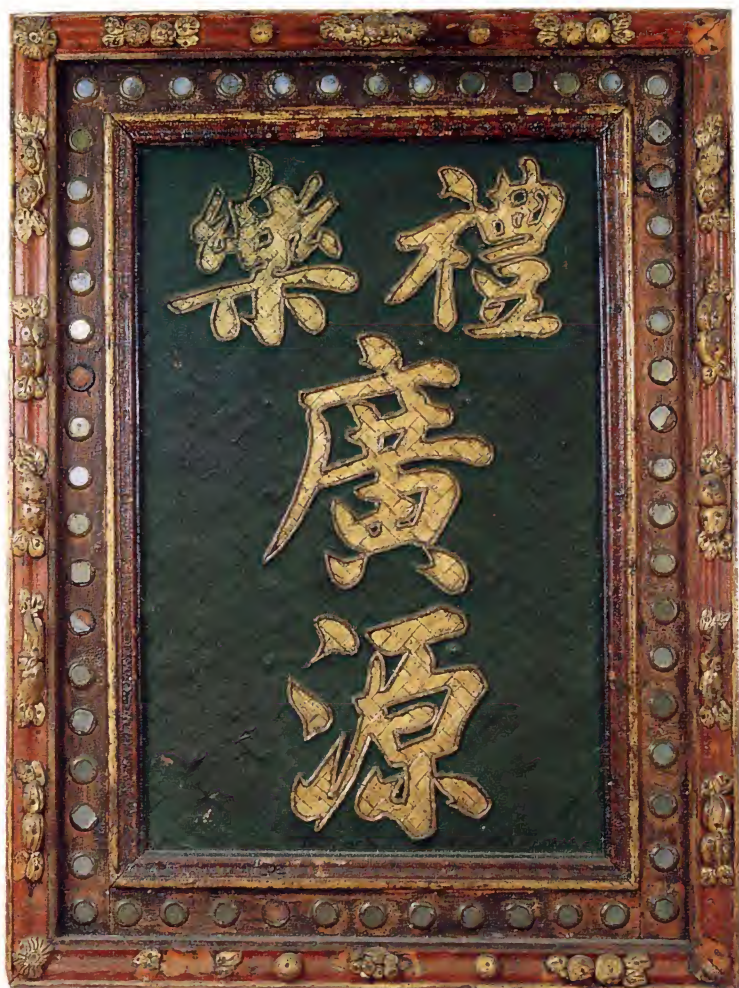 禮樂
廣
源